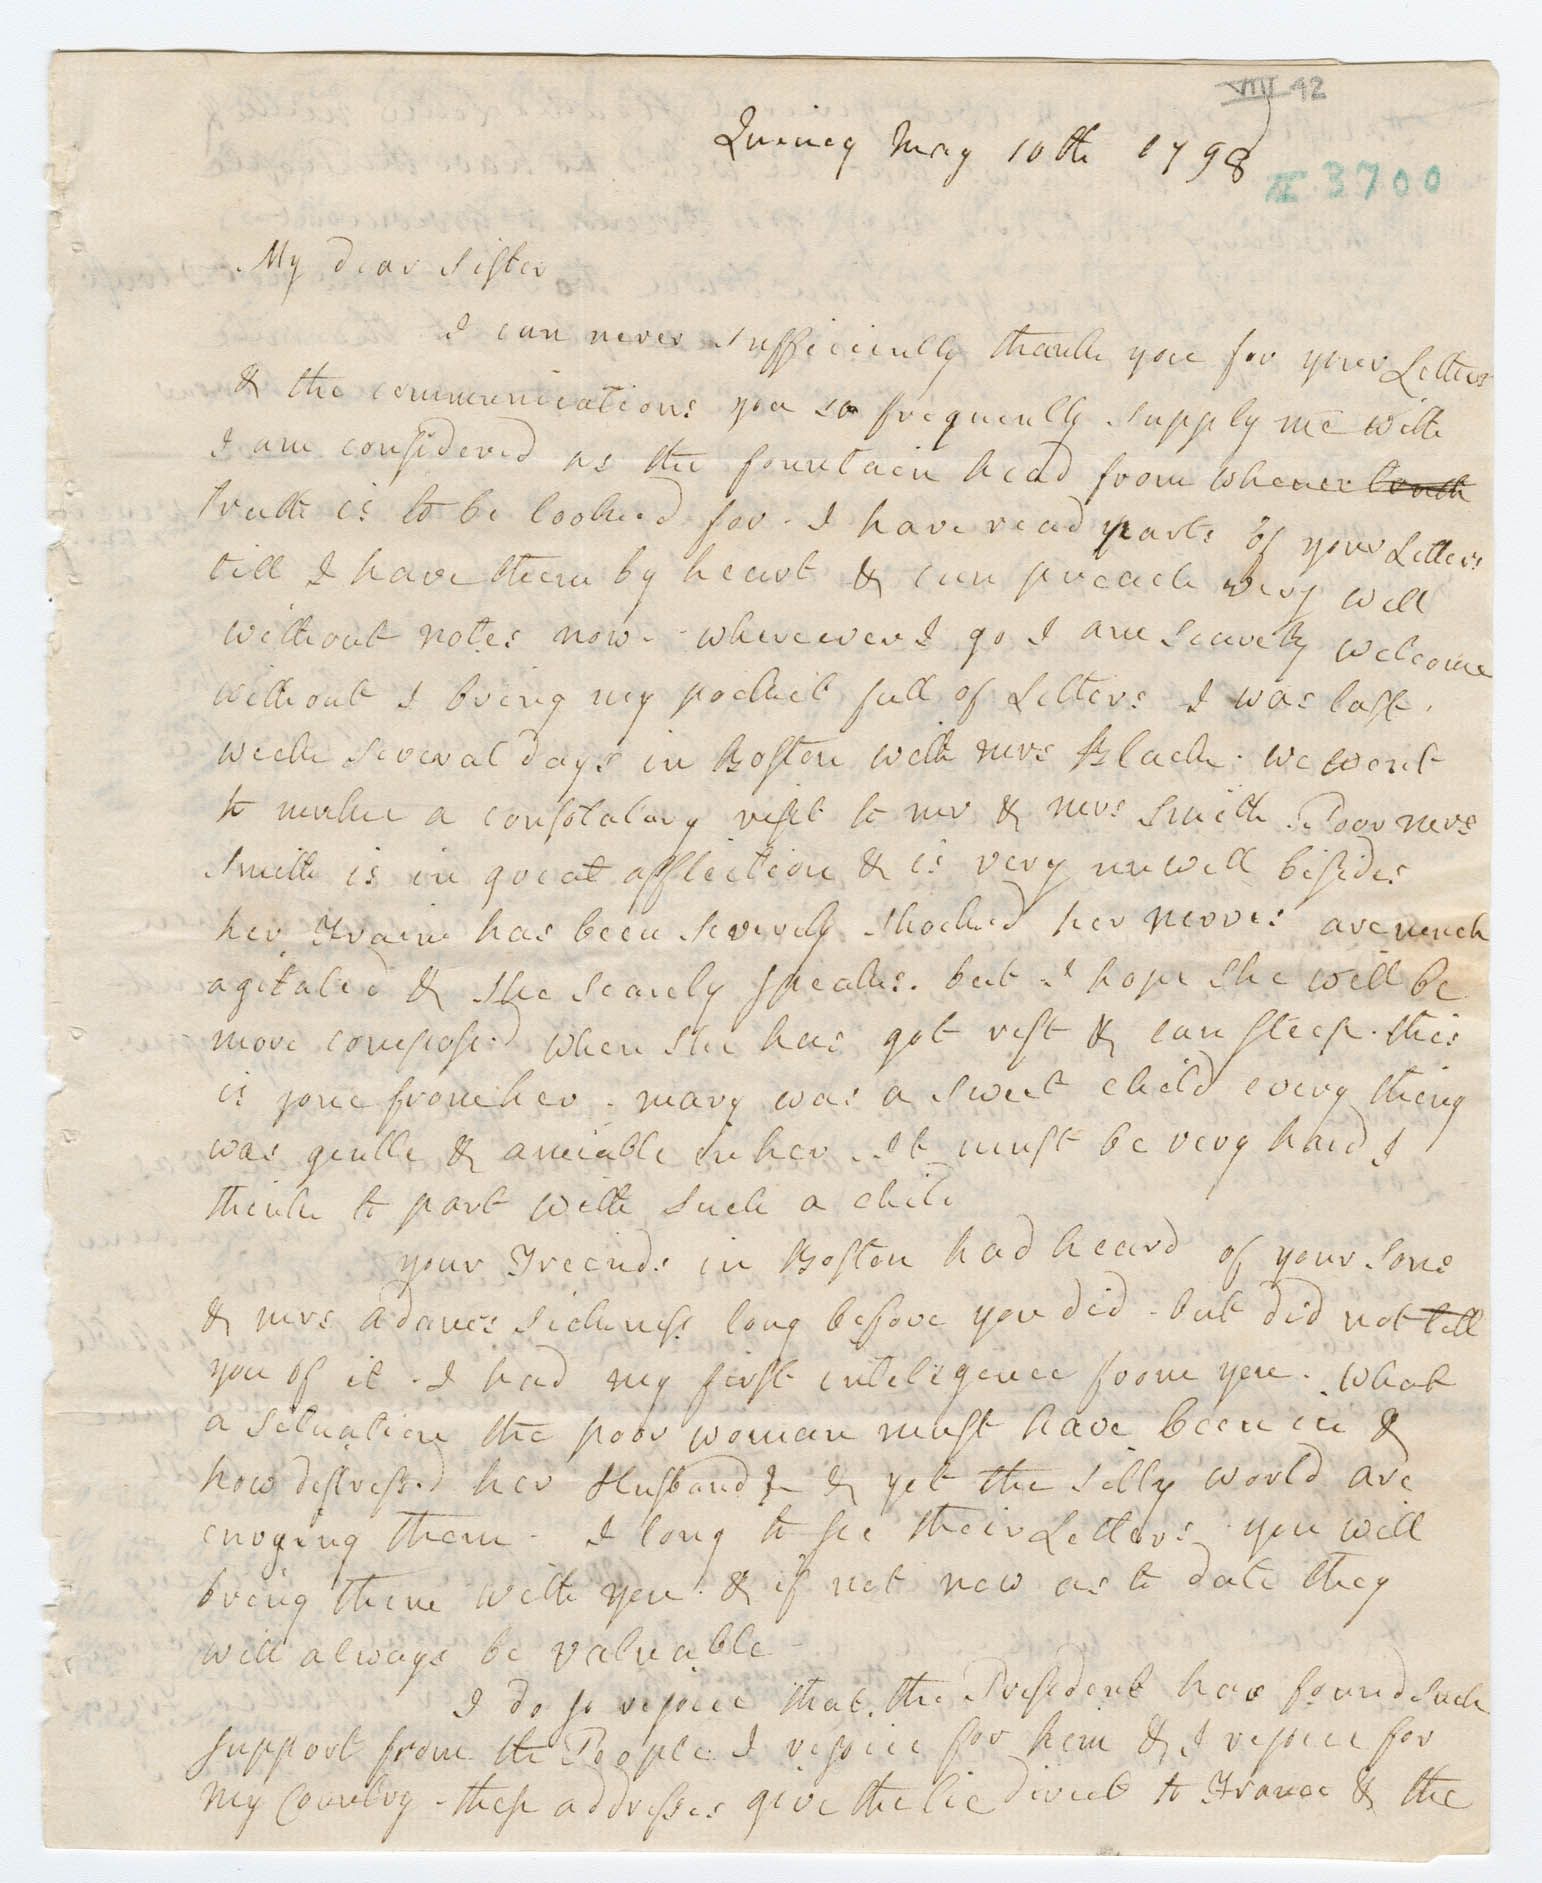 VIII 42
Quincy May 10th 1798
II 3700
My dear Sister
I can never sufficiently thank you for your Letters
& the communications you so frequently supply me with
I am considered as the fountain head from whence truth
truth is to be looked for. I have read parts of your Letters
till I have them by heart & can preach very well
without notes now - whereever I go I am scarcly welcome
without I bring my pocket full of Letters I was last
week several days in Boston with mrs Black. we went
to make a consolatory visit to mr & mrs Smith. Poor mrs
Smith is in great affliction & is very unwell besides
her Frame has been severely shocked her nerves are much
agitated & she scarcly speaks. but I hope she will be
more compos'd when she has got rest & can sleep. this
is gone from her. mary was a sweet child every thing
was gentle & amiable in her. It must be very hard I
think to part with such a child
your Freinds in Boston had heard of your sons
& mrs adams's sickness long before you did - but did not tell
you of it. I had my first inteligence from you. what
a situation the poor woman must have been in &
how distress'd her Husband & yet the silly world are
envying them - I long to see their Letters. you will
bring them with you. & if not new as to date they
will always be valuable -
I do so rejoice that the President has found such
support from the People I rejoice for him & I rejoice for
my Country - these addresses give the lie direct to France & the